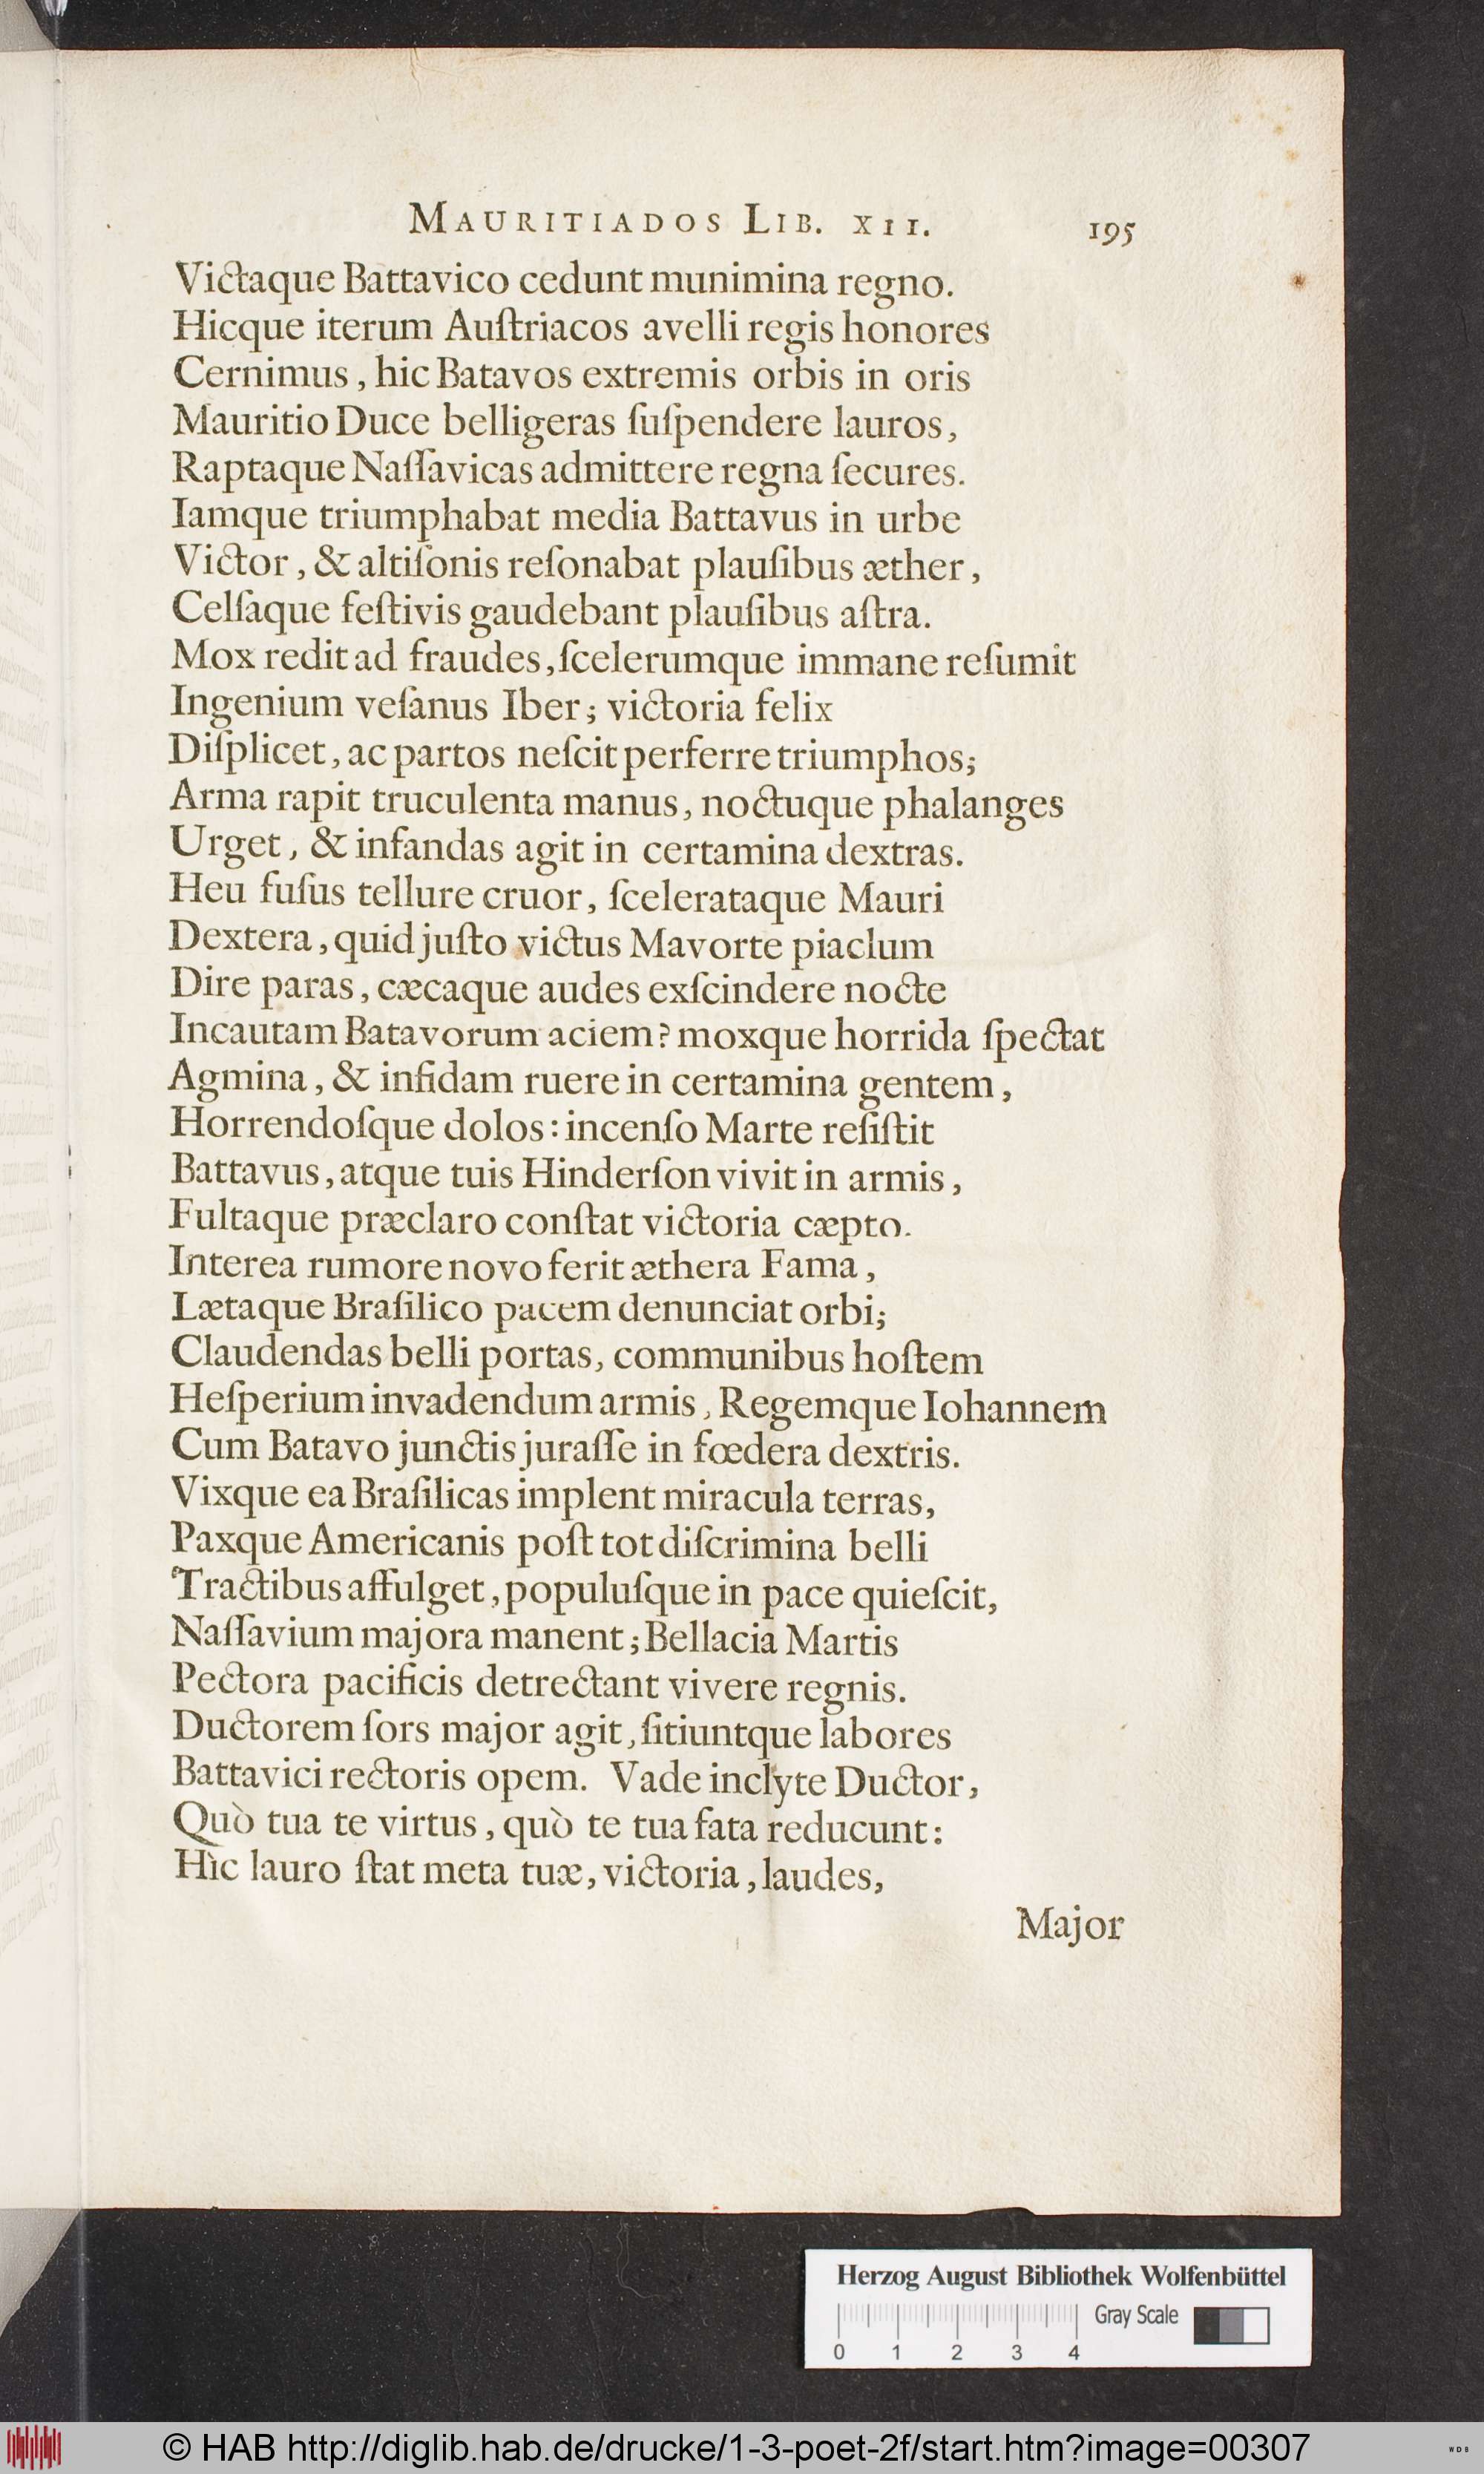 MAURITIADOS LIB. XII. 195
Victaque Battavico cedunt munimina regno.
Hicque iterum Auſtriacos avelli regis honores
Cernimus, hic Batavos extremis orbis in oris
Mauritio Duce belligeras ſuſpendere lauros,
Raptaque Naſſavicas admittere regna ſecures.
Iamque triumphabat media Battavus in urbe
Victor, & altiſonis reſonabat plauſibus æther,
Celſaque feſtivis gaudebant plauſibus aſtra.
Mox redit ad fraudes, ſcelerumque immane reſumit
Ingenium veſanus Iber; victoria felix
Diſplicet, ac partos neſcit perferre triumphos;
Arma rapit truculenta manus, noctuque phalanges
Urget, & infandas agit in certamina dextras.
Heu fuſus tellure cruor, ſcelerataque Mauri
Dextera, quid juſto victus Mavorte piaclum
Dire paras, cæcaque audes exſcindere nocte
Incautam Batavorum aciem? moxque horrida ſpectat
Agmina, & infidam ruere in certamina gentem,
Horrendoſque dolos: incenſo Marte reſiſtit
Battavus, atque tuis Hinderſon vivit in armis,
Fultaque præclaro conſtat victoria cæpto.
Interea rumore novo ferit æthera Fama,
Lætaque Braſilico pacem denunciat orbi;
Claudendas belli portas, communibus hoſtem
Heſperium invadendum armis, Regemque Iohannem
Cum Batavo junctis juraſſe in fœdera dextris.
Vixque ea Braſilicas implent miracula terras,
Paxque Americanis poſt tot diſcrimina belli
Tractibus affulget, populuſque in pace quieſcit,
Naſſavium majora manent; Bellacia Martis
Pectora pacificis detrectant vivere regnis.
Ductorem ſors major agit, ſitiuntque labores
Battavici rectoris opem. Vade inclyte Ductor,
Quò tua te virtus, quò te tua fata reducunt:
Hìc lauro ſtat meta tuæ, victoria, laudes,
Major
Herzog August Bibliothek Wolfenbüttel
Gray Scale
0 1 2 3 4
© HAB http://diglib.hab.de/drucke/1-3-poet-2f/start.htm?image=00307
WDB